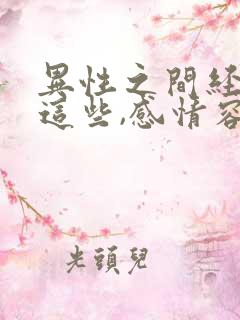 異性之間経
這些,感情容
光頭兒